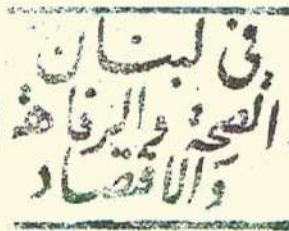 في لبنان
الصحة والرفاهة
والاقتصاد